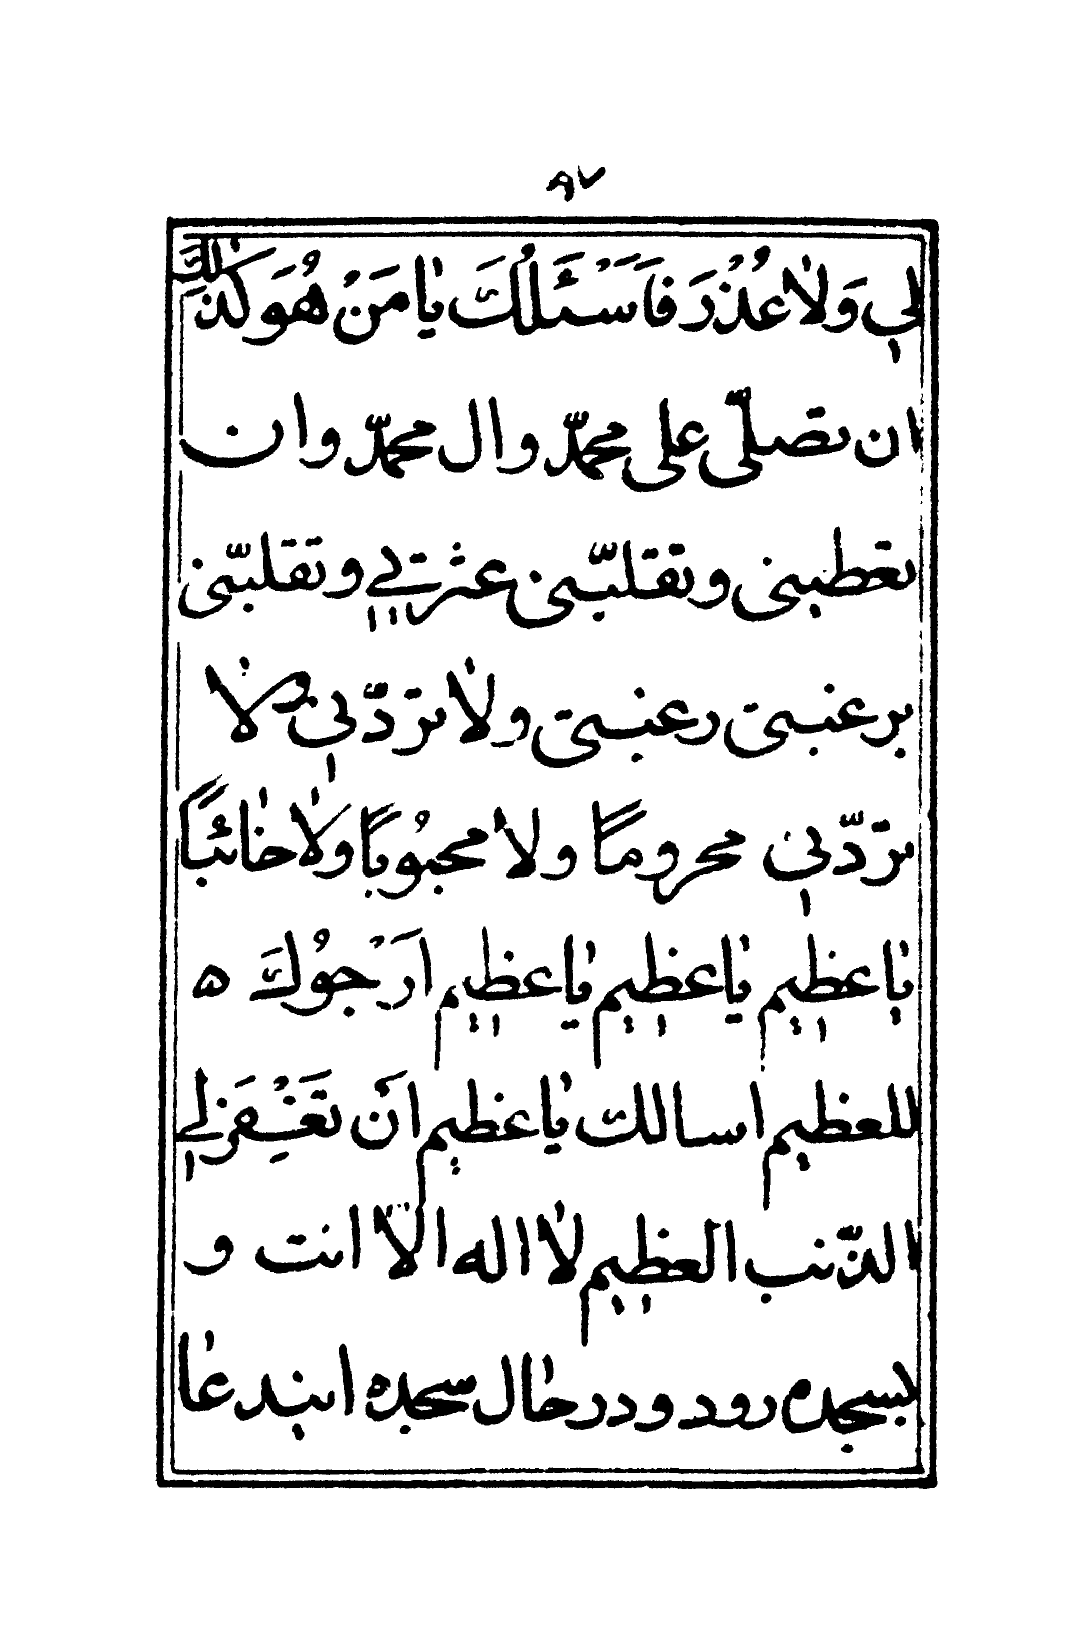 ٩٧
لِي وَلاٰ عُذْرَ فَاَسْئَلُكَ يٰا مَنْ هُوَ كَذٰلِكَ
ان تصلّى على محمّد وال محمّد وان
تعطينى وتقلبّنى عثرتي وتقلبّنى
برغبتى رغبتى ولاٰ تردّنى ولاٰ
تردّنى محروماً ولاٰ محبُوباً ولاٰ خٰائباً
يٰا عظيم يٰا عظيم يٰا عظيم ارَْجُوكَ ه
للعظيم اسالك يٰا عظيم اَنْ تَغْفِرَ لِي
الذّنب العظيم لاٰ اله الاّ انت و
بسجده رود و در حٰال سجده اىند عٰا